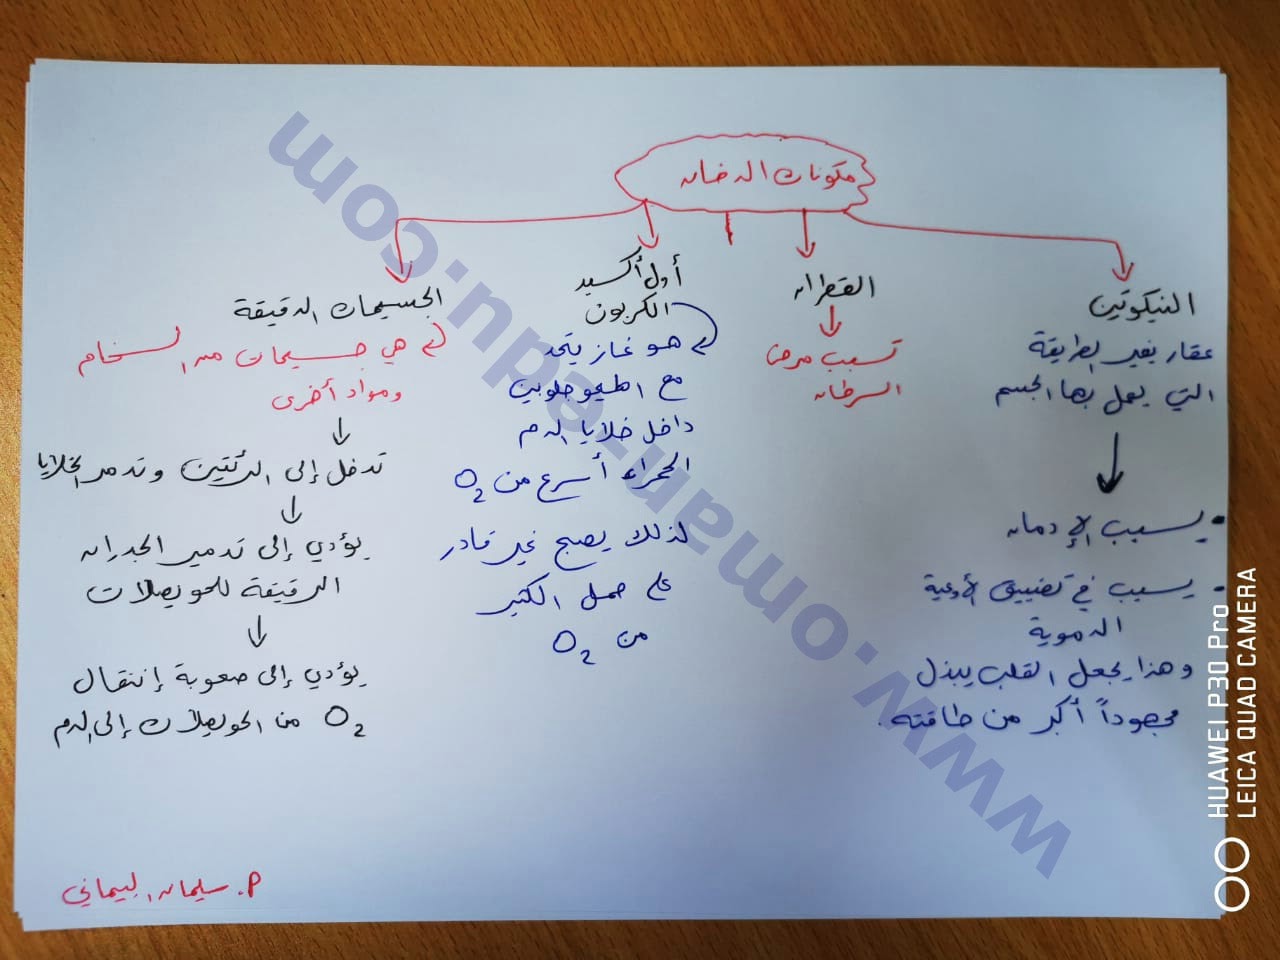 مكونات الدخان
النيكوتين
عقار يغير الطريقة
التي يعمل بها الجسم
• يسبب الإدمان
• يسبب في تضييق الأوعية
الدموية
وهذا يجعل القلب يبذل
مجهوداً أكبر من طاقته.
القطران
تسبب مرض
السرطان
أول أكسيد
الكربون
هو غاز يتحد
مع الهيموجلوبين
داخل خلايا الدم
الحمراء أسرع من O2
لذلك يصبح غير قادر
على حمل الكثير
من O2
الجسيمات الدقيقة
هي جسيمات من السخام
ومواد أخرى
تدخل إلى الرئتين وتدمر الخلايا
يؤدي إلى تدمير الجدران
الرقيقة للحويصلات
يؤدي إلى صعوبة إنتقال
O2 من الحويصلات إلى الدم
م. سليمان البيماني
www.oman-edu.com
HUAWEI P30 Pro
LEICA QUAD CAMERA